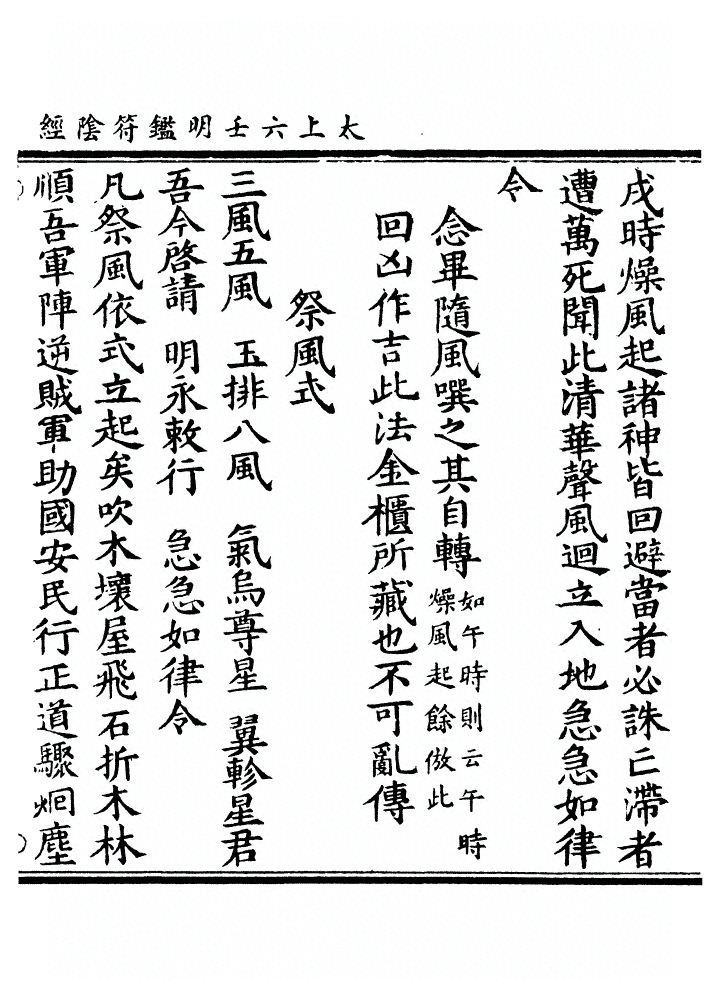 太上六壬明鑑符陰經
戌時燥風起諸神皆回避當者必誅亡滯者
遭萬死聞此清華聲風迴立入地急急如律
令
念畢隨風噀之其自轉如午時則云午時燥風起餘倣此
回凶作吉此法金櫃所藏也不可亂傳
祭風式
三風五風 玉排八風 氣烏尊星 翼軫星君
吾今啓請 明永敕行 急急如律令
凡祭風依式立起矣吹木壞屋飛石折木林
順吾軍陣逆賊軍助國安民行正道驟炯塵